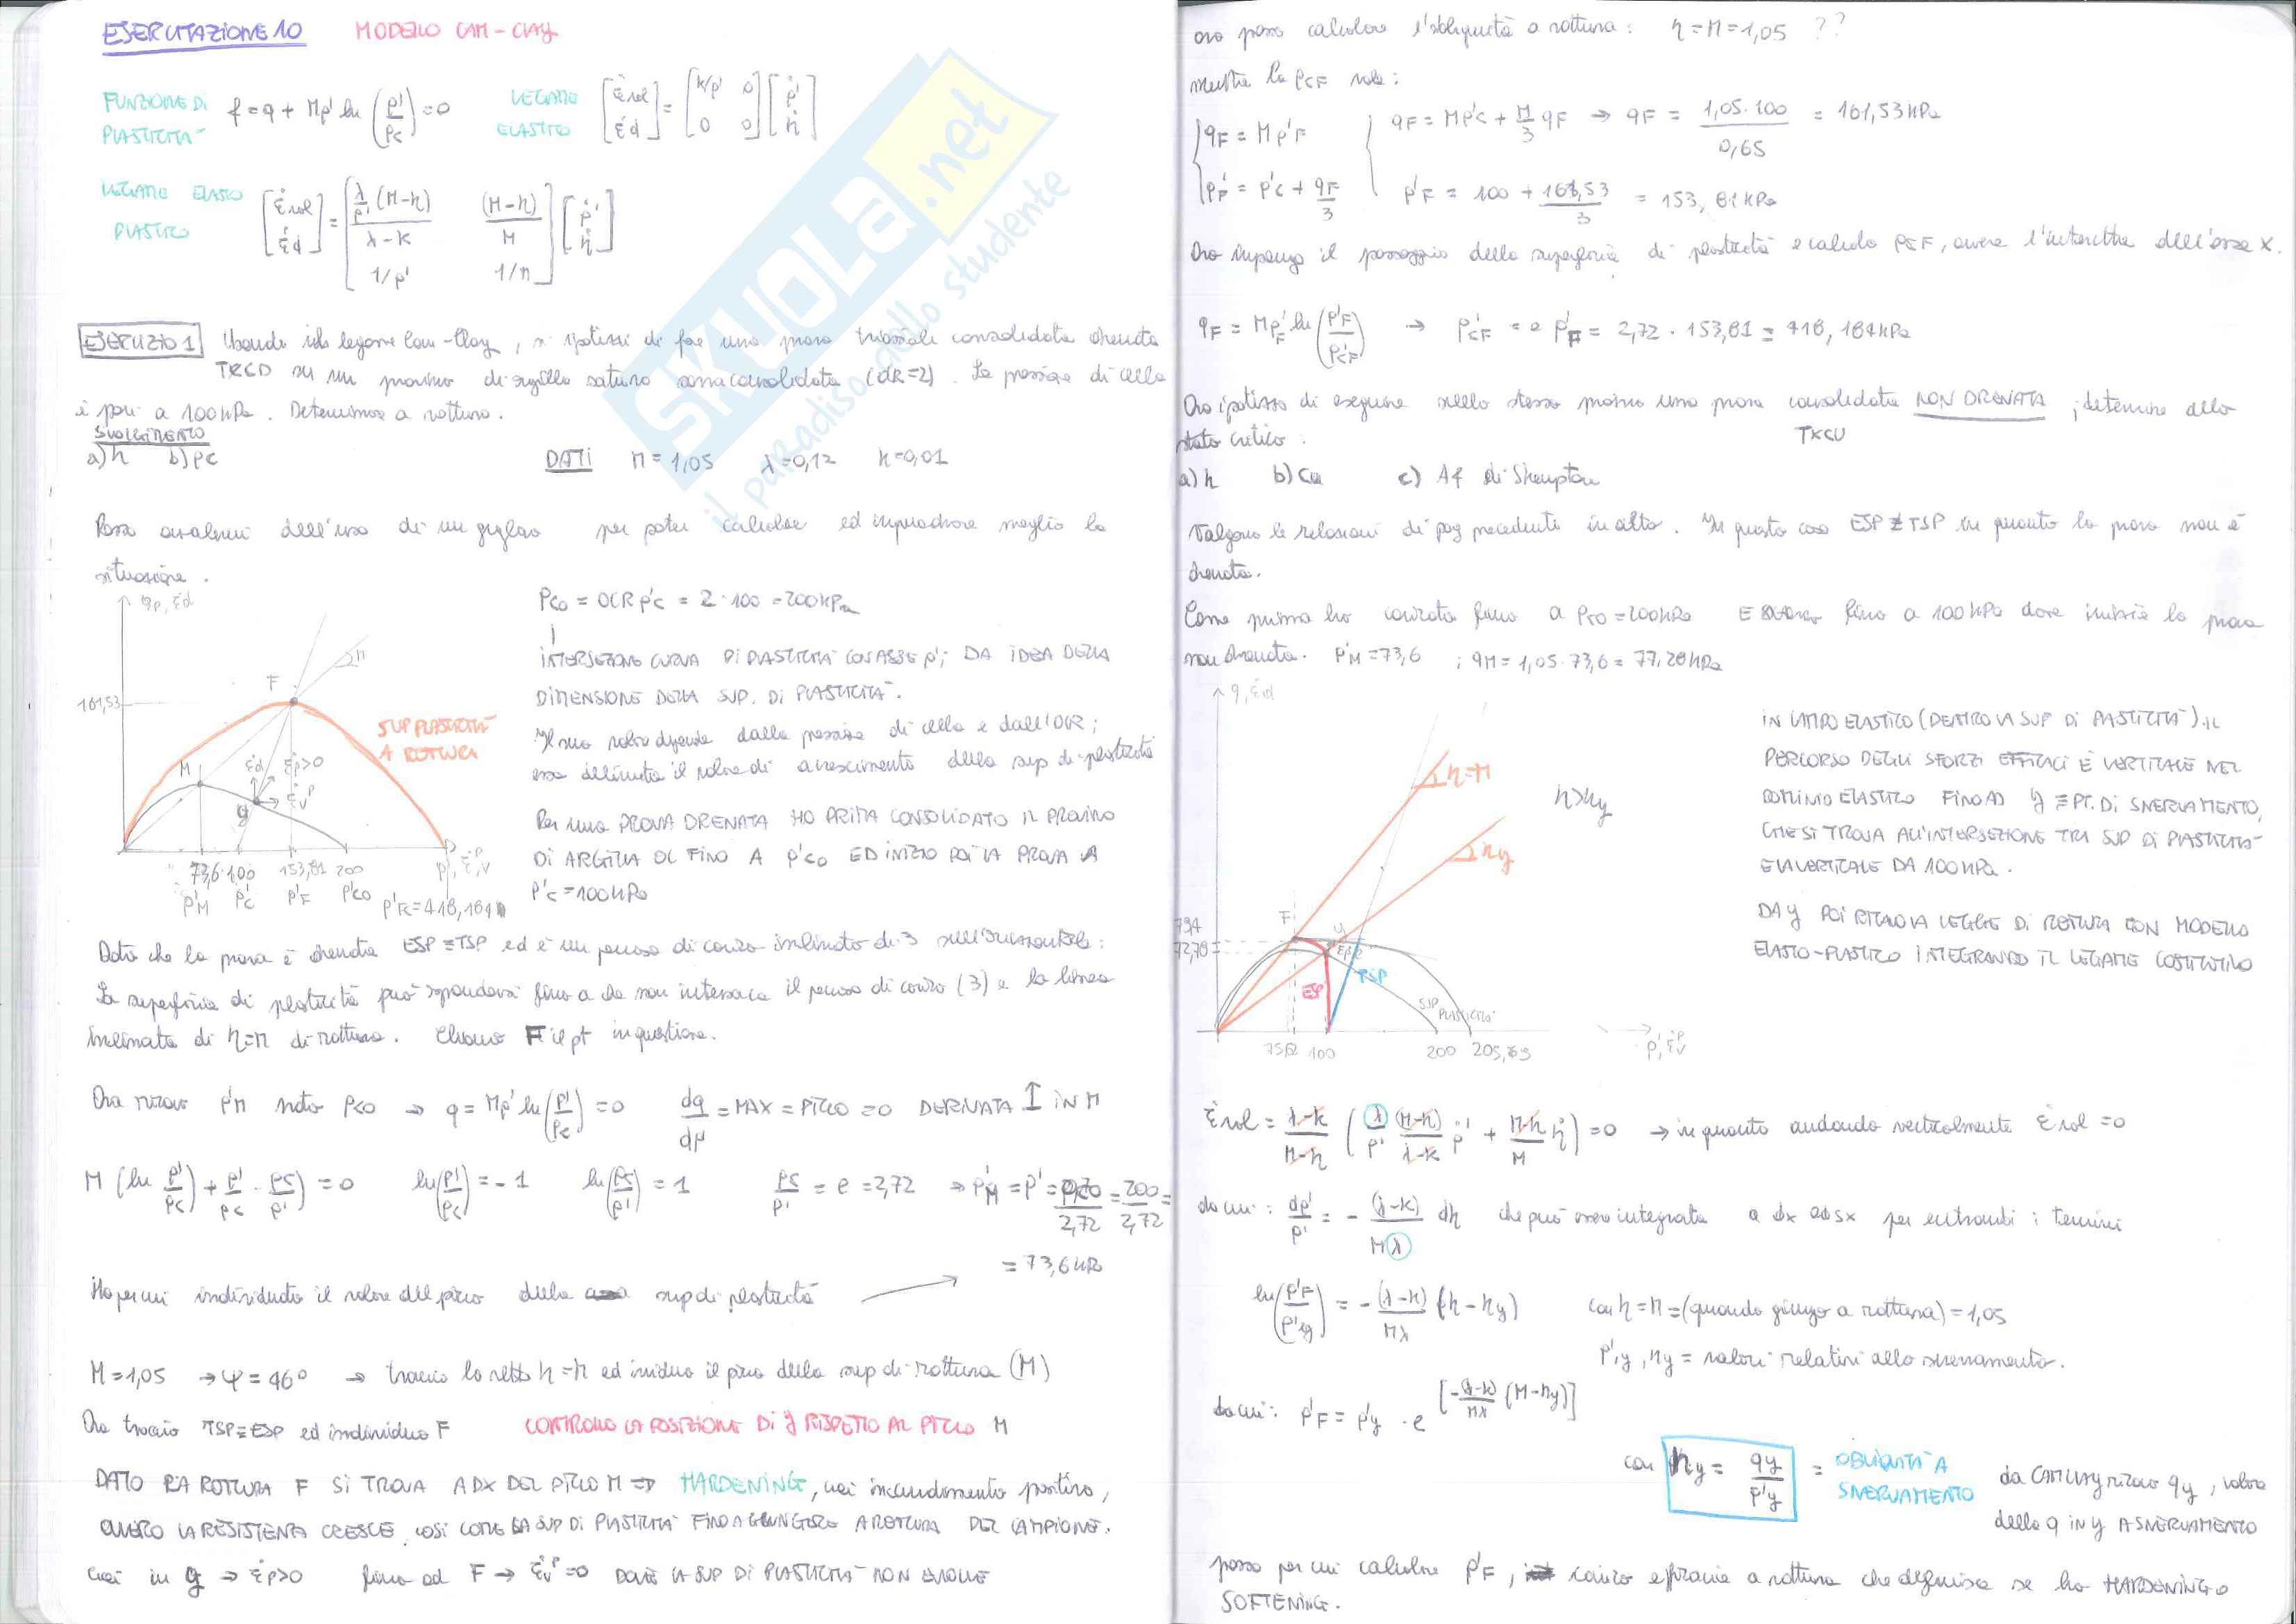 ESERCITAZIONE 10 MODELLO CAM-CLAY
FUNZIONE DI PLASTICITÀ f = q + Mp' ln (p'/pc) = 0
LEGAME ELASTICO [ε̇vol ε̇d] = [k/p' 0 0 0] [ṗ' η̇]
LEGAME ELASTO PLASTICO [ε̇vol ε̇d] = [λ/p' (M-η)/λ-k (M-η)/M 1/p' 1/η] [ṗ' η̇]
ESERCIZIO 1 Usando il legame Cam-Clay, si ipotizzi di fare una prova triassiale consolidata drenata
TRCD su un provino di argilla satura sovraconsolidata (OCR=2). La pressione di cella
è pari a 100 kPa. Determinare a rottura.
SVOLGIMENTO
a) η b) pc DATI M = 1,05 λ = 0,12 k = 0,01
Posso avvalermi dell'uso di un grafico per poter calcolare ed inquadrare meglio la
situazione.
qp, ε̇d
M
F
161,53
SUP PLASTICITÀ
A ROTTURA
M
ε̇d ε̇p>0
ε̇v^p
y
73,6 100 153,81 200
p'M p'c p'F p'co p'Fc = 418,184
p', ε̇v^p
Pco = OCR p'c = 2·100 = 200 kPa
INTERSEZIONE CURVA DI PLASTICITÀ CON ASSE p'; DA IDEA DELLA
DIMENSIONE DELLA SUP. DI PLASTICITÀ.
Il suo valore dipende dalla pressione di cella e dall'OCR;
essa delimita il valore di accrescimento della sup di plasticità
Per una PROVA DRENATA HO PRIMA CONSOLIDATO IL PROVINO
DI ARGILLA OC FINO A p'co ED INIZIO POI LA PROVA A
p'c = 100 kPa
Dato che la prova è drenata ESP ≡ TSP ed è un percorso di carico inclinato di 3 sull'orizzontale:
la superficie di plasticità può espandersi fino a che non interseca il percorso di carico (3) e la linea
inclinata di η=M di rottura. Chiamo F il pt in questione.
Ora ricavo p'M noto pco → q = Mp' ln (p'/pc) = 0 dq/dp' = MAX = PICCO = 0 DERIVATA IN M
M (ln p'/pc) + p'/pc · pc/p') = 0 ln(p'/pc) = -1 ln(pc/p') = 1 pc/p' = e = 2,72 → p'M = p' = pco/2,72 = 200/2,72 =
= 73,6 kPa
Ho per cui individuato il valore del picco della sup di plasticità
M = 1,05 → φ = 46° → traccio la retta η=M ed individuo il picco della sup di rottura (M)
Ora traccio TSP ≡ ESP ed individuo F CONTROLLO LA POSIZIONE DI y RISPETTO AL PICCO M
DATO LA ROTTURA F SI TROVA A DX DEL PICCO M ⇒ HARDENING, cioè incrudimento positivo,
OVVERO LA RESISTENZA CRESCE, COSÌ COME LA SUP DI PLASTICITÀ FINO A GIUNGERE A ROTTURA DEL CAMPIONE.
Così in y → ε̇p>0 fino ad F → ε̇v^p = 0 DOVE LA SUP DI PLASTICITÀ NON EVOLVE
ora posso calcolare l'obliquità a rottura: η = M = 1,05 ??
mentre la pcF vale:
qF = Mp'F qF = Mp'c + M/3 qF → qF = 1,05·100/0,65 = 161,53 kPa
p'F = p'c + qF/3 p'F = 100 + 161,53/3 = 153,81 kPa
Ora impongo il passaggio della superficie di plasticità e calcolo pcF, ovvero l'intercetta dell'asse x.
qF = Mp'F ln (p'F/p'cF) → p'cF = e p'F = 2,72 · 153,81 = 418,184 kPa
Ora ipotizzo di eseguire sullo stesso provino una prova consolidata NON DRENATA; determinare allo
stato critico: TXCU
a) η b) Cu c) Af di Skempton
Valgono le relazioni di pag precedente in alto. In questo caso ESP ≢ TSP in quanto la prova non è
drenata.
Come prima ho caricato fino a pco = 200 kPa E SCARICO fino a 100 kPa dove inizia la prova
non drenata. p'M = 73,6 ; qM = 1,05·73,6 = 77,28 kPa
q, ε̇d
η=M
ηy
η>ηy
F
y
ESP
TSP
SUP
PLASTICITÀ
100 200 205,69
p', ε̇v^p
IN CAMPO ELASTICO (DENTRO LA SUP DI PLASTICITÀ) IL
PERCORSO DEGLI SFORZI EFFICACI È VERTICALE NEL
DOMINIO ELASTICO FINO AD y ≡ PT. DI SNERVAMENTO,
CHE SI TROVA ALL'INTERSEZIONE TRA SUP DI PLASTICITÀ
E LA VERTICALE DA 100 kPa.
DA y POI RICAVO LA LEGGE DI ROTTURA CON MODELLO
ELASTO-PLASTICO INTEGRANDO IL LEGAME COSTITUTIVO
ε̇vol = λ-k/M-η (λ/p' (M-η)/λ-k ṗ' + M-η/M η̇) = 0 → in quanto andando verticalmente ε̇vol = 0
da cui: dp'/p' = - (λ-k)/Mλ dη che può essere integrata a dx ed sx per entrambi i termini
ln(p'F/p'y) = - (λ-k)/Mλ (η-ηy) con η=M=(quando giungo a rottura)=1,05
p'y, ηy = valori relativi allo snervamento.
da cui: p'F = p'y · e^[-(λ-k)/Mλ (M-ηy)]
con ηy = qy/p'y = OBLIQUITÀ A SNERVAMENTO da CAM CLAY ricavo qy, valore
della q in y A SNERVAMENTO
posso per cui calcolare p'F, carico efficace a rottura che definisce se ho HARDENING o
SOFTENING.
SKUOLA.net
il paradiso dello studente